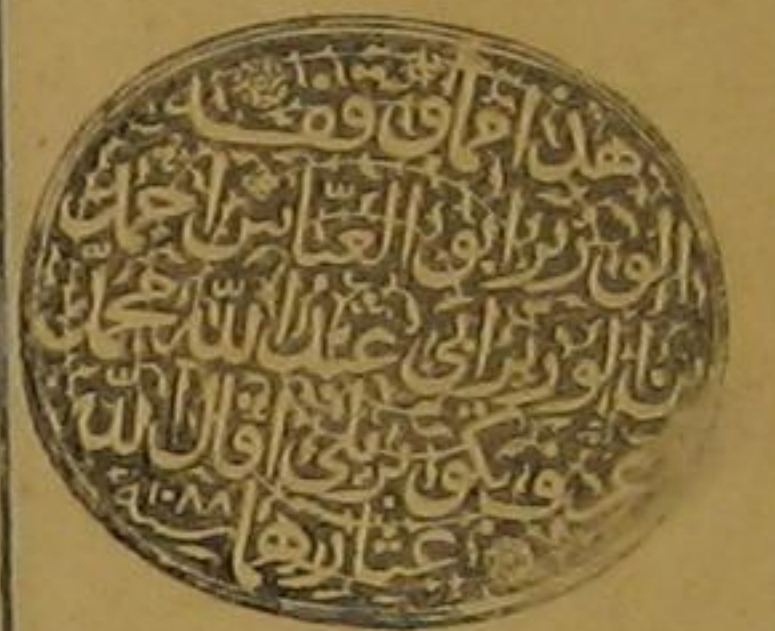 هذا مما وقفه
الوزير ابو العباس احمد
بن الوزير ابي عبد الله محمد
عرف بكوبريلي اقال الله
عثارهما سنه ١٠٨٨